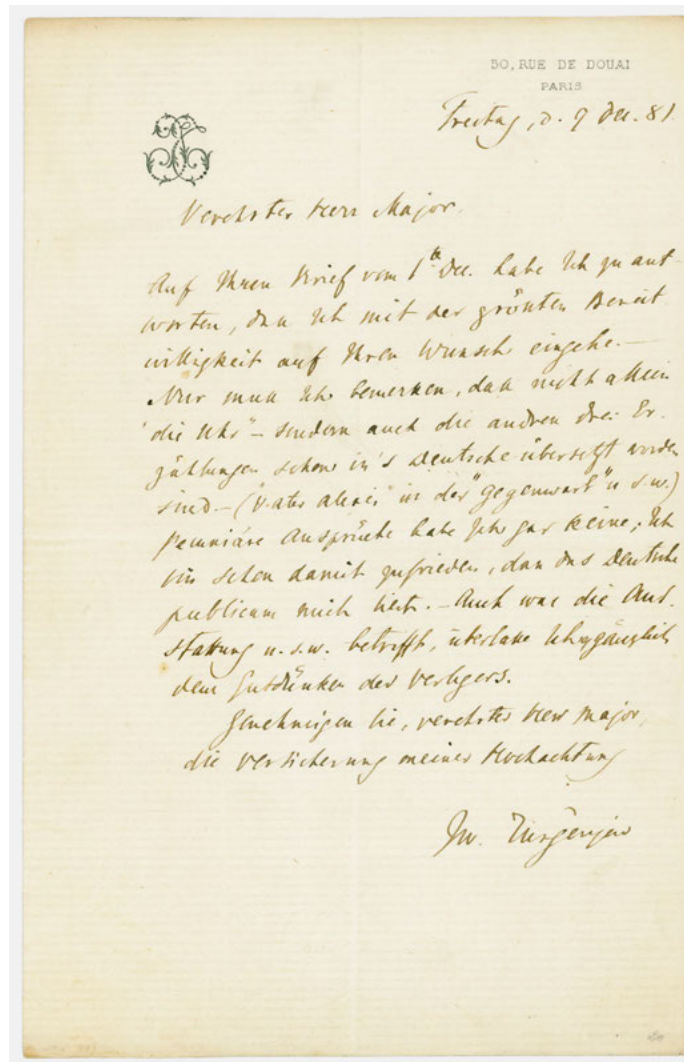 50, RUE DE DOUAI
PARIS
Freitag, d. 9 Dec. 81.
Verehrter Herr Major,
Auf Ihren Brief vom 1ten Dec. habe Ich zu ant-
worten, dass Ich mit der grössten Bereit
willigkeit auf Ihren Wunsch eingehe. —
Nur muss Ich bemerken, dass nicht allein
"die Uhr" — sondern auch die andren drei Er-
zählungen schon in's Deutsche übersetzt worden
sind — ("Vater Alexei" in der "Gegenwart" u. s. w.)
Pecuniäre Ansprüche habe Ich gar keine; Ich
bin schon damit zufrieden, dass das Deutsche
publicum mich liest. — Auch was die Aus-
stattung u. s. w. betrifft, überlasse Ich gänzlich
dem Gutdünken des Verlegers.
Genehmigen Sie, verehrter Herr Major,
die Versicherung meiner Hochachtung
Iw. Turgénjew